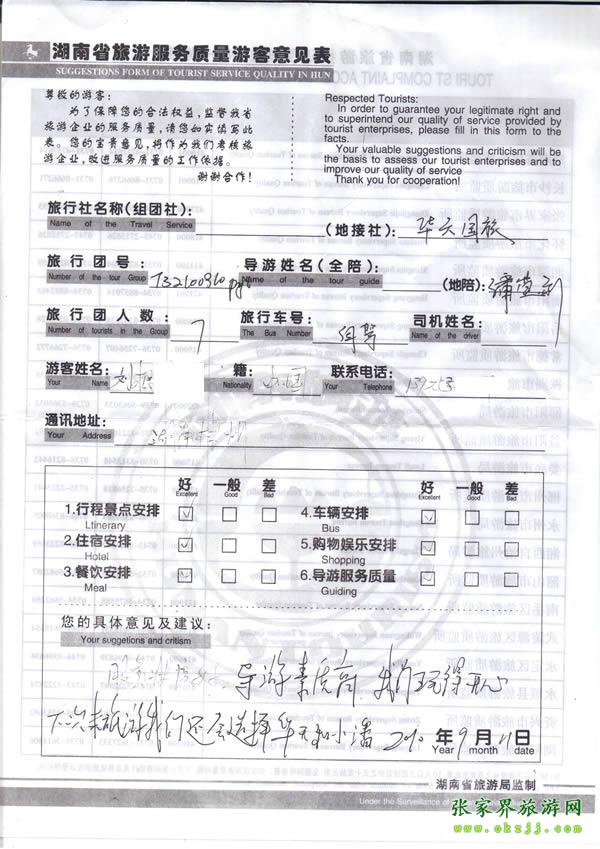 湖南省旅游服务质量游客意见表
SUGGESTIONS FORM OF TOURIST SERVICE QUALITY IN HUN
尊敬的游客：
为了保障您的合法权益，监督我省
旅游企业的服务质量，请您如实填写此
表。您的宝贵意见，将作为我们考核旅
游企业，改进服务质量的工作依据。
谢谢合作！
Respected Tourists:
In order to guarantee your legitimate right and
to superintend our quality of service provided by
tourist enterprises, please fill in this form to the
facts.
Your valuable suggestions and criticism will be
the basis to assess our tourist enterprises and to
improve our quality of service
Thank you for cooperation!
旅行社名称(组团社)：
Name of the Travel Service
(地接社)： 华天国旅
旅行团号：
Number of the tour Group
导游姓名(全陪)：
Name of the tour guide
(地陪)：
旅行团人数：
Number of tourists in the Group
7
旅行车号：
The Bus Number
司机姓名：
Name of the driver
游客姓名：
Your Name
籍：
Nationality
中国
联系电话：
Your Telephone
通讯地址：
Your Address
好 一般 差 好 一般 差
Excellent Good Bad Excellent Good Bad
1.行程景点安排 4.车辆安排
Ltinerary Bus
2.住宿安排 5.购物娱乐安排
Hotel Shopping
3.餐饮安排 6.导游服务质量
Meal Guiding
您的具体意见及建议：
Your suggetions and critism
导游素质高 我们玩得开心
下次来旅游我们还会选择华天和小潘 2010 年 9 月 11 日
Year month date
湖南省旅游局监制
Under the Surveillance of
张家界旅游网
www.okzjj.com